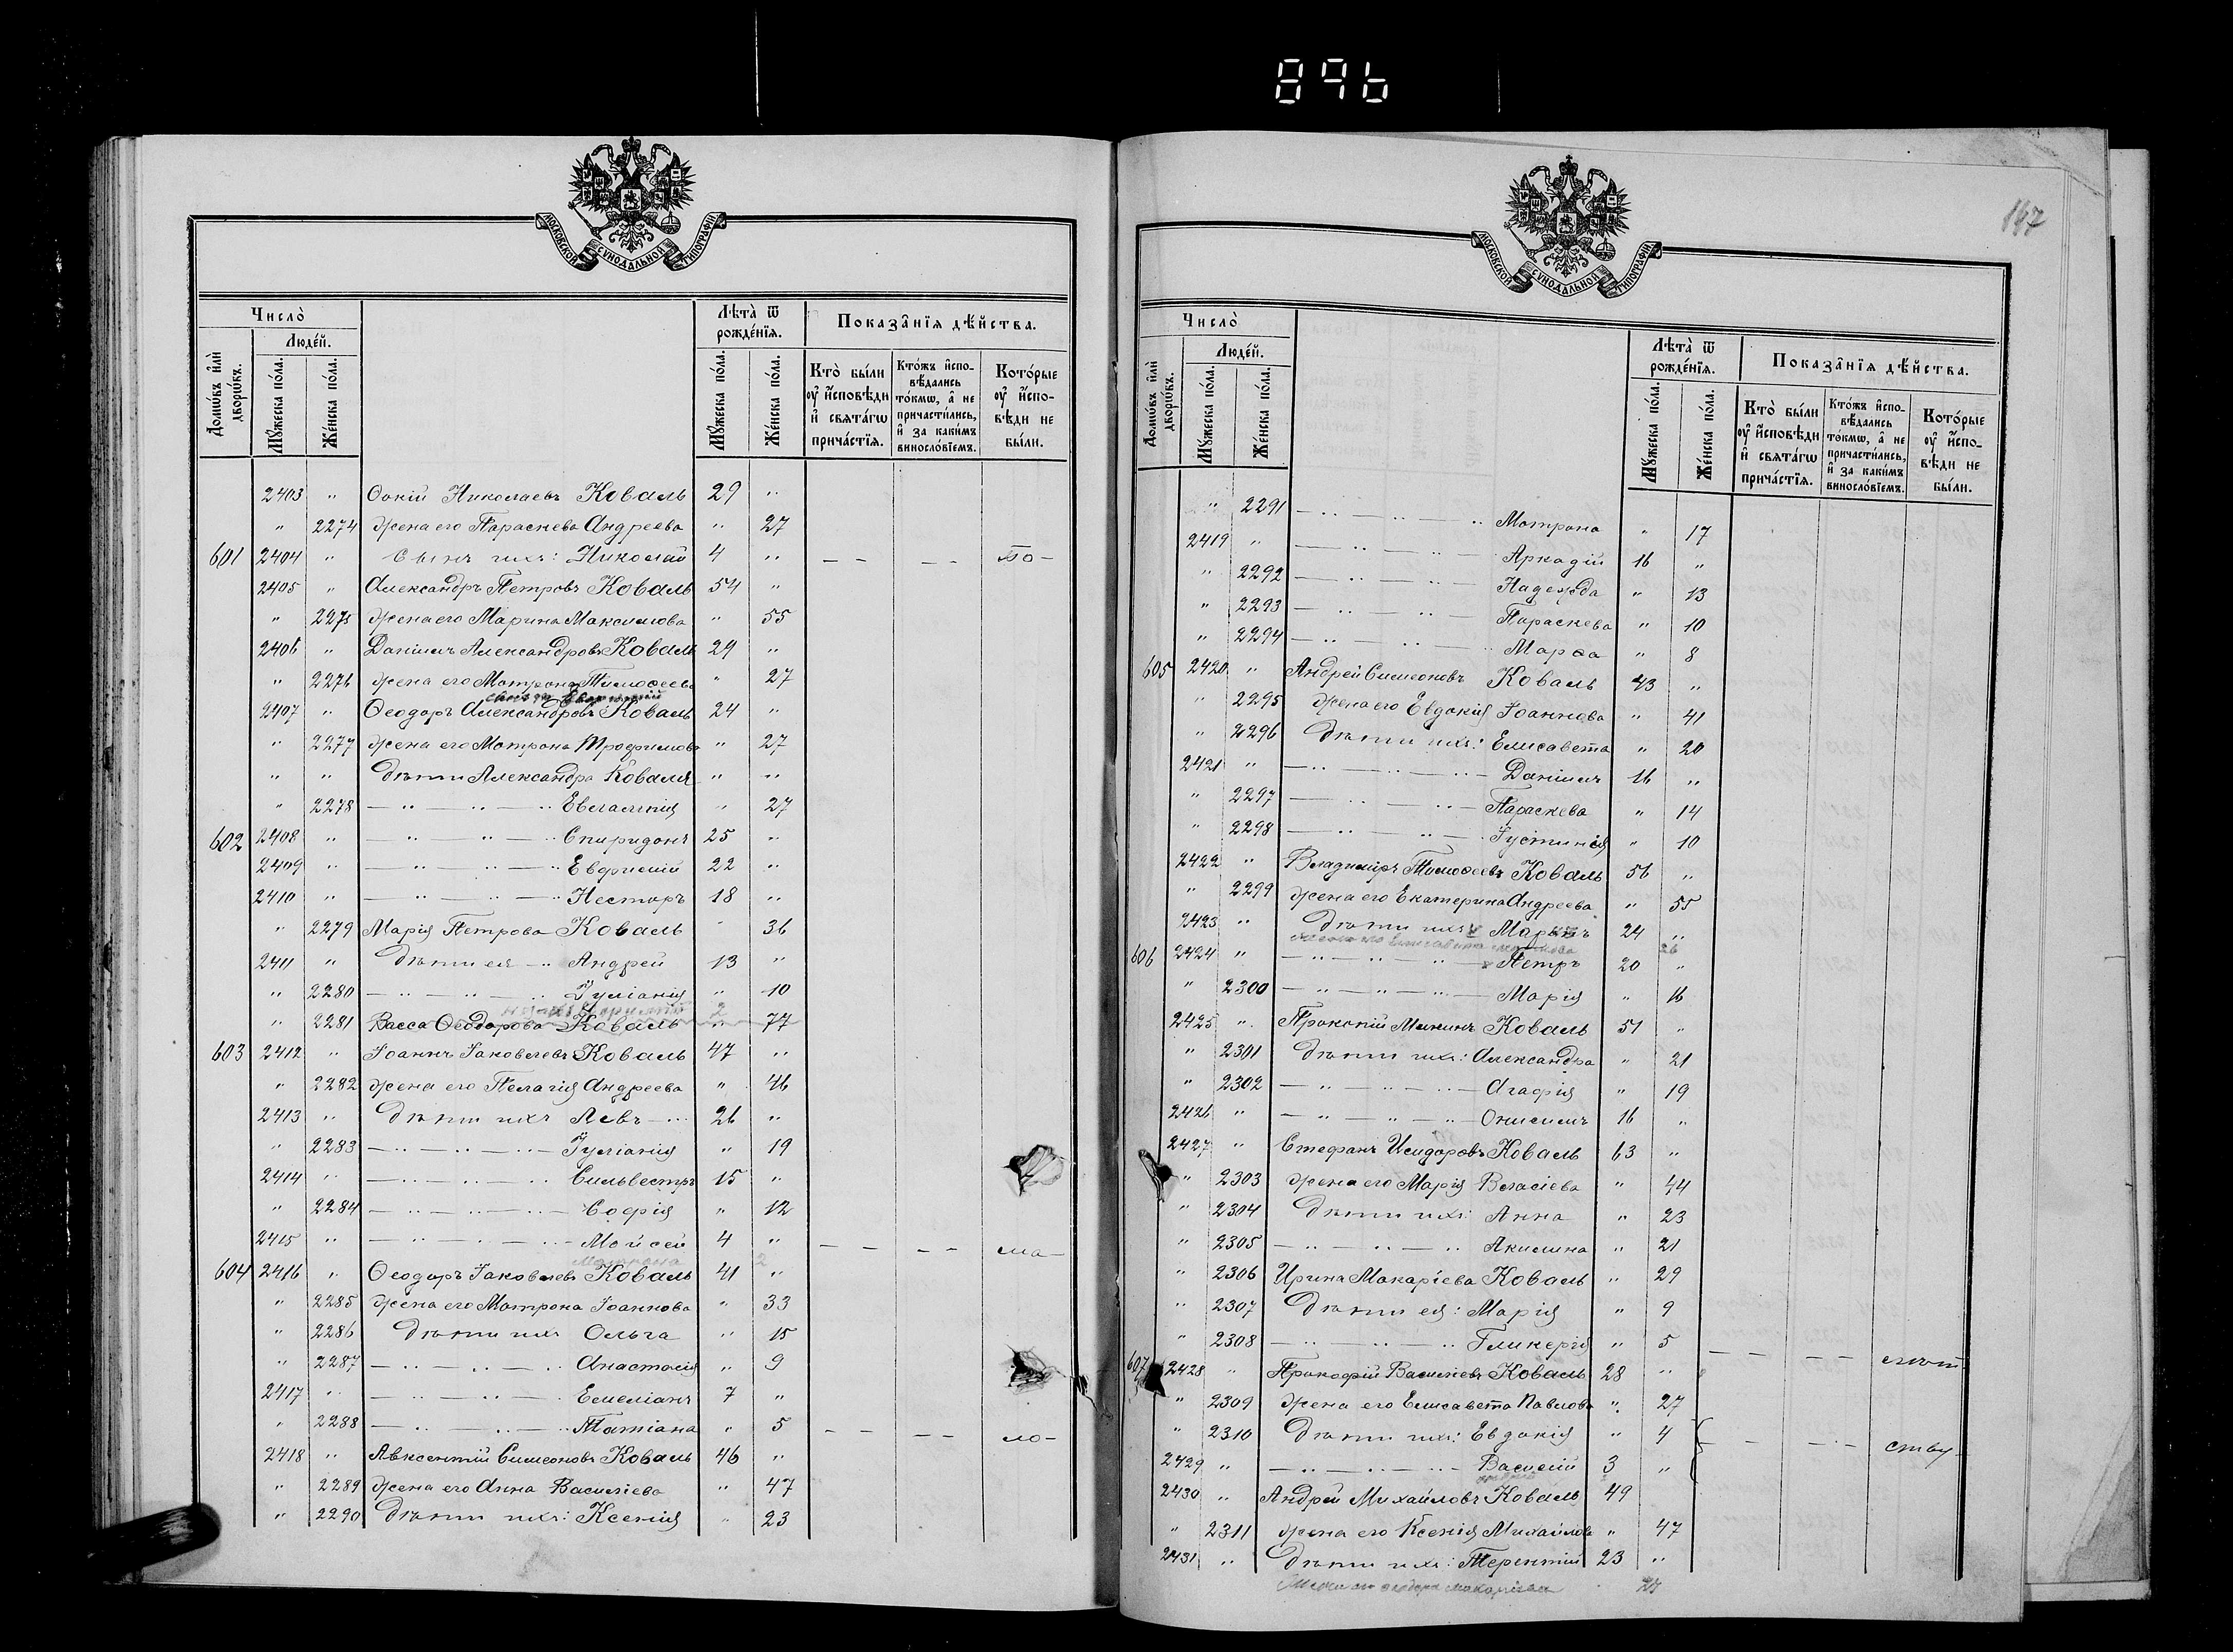 896
МОСКОВСКОЙ СѴНОДАЛЬНОЙ ТИПОГРАФІИ
Число̀
Люде́й.
Домѡ́въ и҆лѝ дворѡ́въ.
Мꙋ́жеска по́ла.
Же́нска по́ла.
Лѣ́та ѿ рожде́нїѧ.
Мꙋ́жеска по́ла.
Же́нска по́ла.
Показа̑нїѧ дѣ́йства.
Кто̀ бы́ли оу҆ и҆́сповѣди и҆ свѧта́гѡ прича́стїѧ.
Кто́жъ и҆спо-вѣ́дались то́кмѡ, а҆ не причасти́лись, и҆ за каки́мъ винослѡ́вїемъ.
Кото́рые оу҆ и҆́спо-вѣди не бы́ли.
2403 " Фокій Николаевъ Коваль 29 "
" 2274 жена его Параскева Андреева " 27
601 2404 " Сынъ ихъ: Николай 4 " — — — — по-
2405 " Александръ Петровъ Коваль 54 "
" 2275 жена его Марина Максимова " 55
2406 " Даніилъ Александровъ Коваль 29 "
" 2276 жена его Матрона Тимоѳеева " 27
2407 " Ѳеодоръ Александровъ Коваль 24 "
" 2277 жена его Матрона Трофимова " 27
" " дѣти Александра Коваля " "
" 2278 — " — " — " Евлампія " 27
602 2408 " — " — " — " Спиридонъ 25 "
2409 " — " — " — " Евфимій 22 "
2410 " — " — " — " Несторъ 18 "
" 2279 Марія Петрова Коваль " 36
2411 " дѣти ея — " Андрей 13 "
" 2280 — " — " — " Іуліанія " 10
2
" 2281 Васса Ѳеодорова Коваль " 77
603 2412 " Іоаннъ Іаковлевъ Коваль 47 "
" 2282 жена его Пелагія Андреева " 46
2413 " дѣти ихъ Левъ — " 26 "
" 2283 — " — " — " — Іуліанія " 19
2414 " — " — " — " — Сильвестръ 15 "
" 2284 — " — " — " — Софія " 12
2415 " — " — " — " — Мойсей 4 " — — — — ма-
2
604 2416 " Ѳеодоръ Іаковлевъ Коваль 41 "
" 2285 жена его Матрона Іоаннова " 33
" 2286 дѣти ихъ Ольга " 15
" 2287 — " — " — " Анастасія " 9
2417 " — " — " — " Емеліанъ 7 "
" 2288 — " — " — " Татіана " 5 — — — — ло-
2418 " Авксентій Симеоновъ Коваль 46 "
" 2289 жена его Анна Василіева " 47
" 2290 дѣти ихъ: Ксенія " 23
147
МОСКОВСКОЙ СѴНОДАЛЬНОЙ ТИПОГРАФІИ
Число̀
Люде́й.
Домѡ́въ и҆лѝ дворѡ́въ.
Мꙋ́жеска по́ла.
Же́нска по́ла.
Лѣ́та ѿ рожде́нїѧ.
Мꙋ́жеска по́ла.
Же́нска по́ла.
Показа̑нїѧ дѣ́йства.
Кто̀ бы́ли оу҆ и҆́сповѣди и҆ свѧта́гѡ прича́стїѧ.
Кто́жъ и҆спо-вѣ́дались то́кмѡ, а҆ не причасти́лись, и҆ за каки́мъ винослѡ́вїемъ.
Кото́рые оу҆ и҆́спо-вѣди не бы́ли.
" 2291 — " — " — " Матрона " 17
2419 " — " — " — " Аркадій 16 "
" 2292 — " — " — Надежда " 13
" 2293 — " — " — Параскева " 10
" 2294 — " — " — Марѳа " 8
605 2420 " Андрей Симеоновъ Коваль 43 "
" 2295 жена его Евдокія Іоаннова " 41
" 2296 дѣти ихъ: Елисавета " 20
2421 " — " — " — " — Даніилъ 16 "
" 2297 — " — " — Параскева " 14
" 2298 — " — " — Іустинія " 10
2422 " Владиміръ Тимоѳеевъ Коваль 56 "
" 2299 жена его Екатерина Андреева " 55
2423 " дѣти ихъ Маркъ 24 "
26
606 2424 " — " — " — " — Петръ 20 "
" 2300 — " — " — " — Марія " 16
2425 " Прокопій Мининъ Коваль 51 "
" 2301 дѣти ихъ: Александра " 21
" 2302 — " — " — " — Агафія " 19
2426 " — " — " — " — Онисимъ 16 "
2427 " Стефанъ Исидоровъ Коваль 63 "
" 2303 жена его Марія Власіева " 44
" 2304 дѣти ихъ: Анна " 23
" 2305 — " — " — " Акилина " 21
" 2306 Ирина Макаріева Коваль " 29
" 2307 дѣти ея: Марія " 9
" 2308 — " — " — Гликерія " 5 — — — —
607 2428 " Прокофій Василіевъ Коваль 28 "
" 2309 жена его Елисавета Павлова " 27
" 2310 дѣти ихъ: Евдокія " 4 — — — —
2429 " — " — " — " — Василій 3 "
2430 " Андрей Михайловъ Коваль 49
" 2311 жена его Ксенія Михайлова " 47
2431 " дѣти ихъ: Терентій 23 "